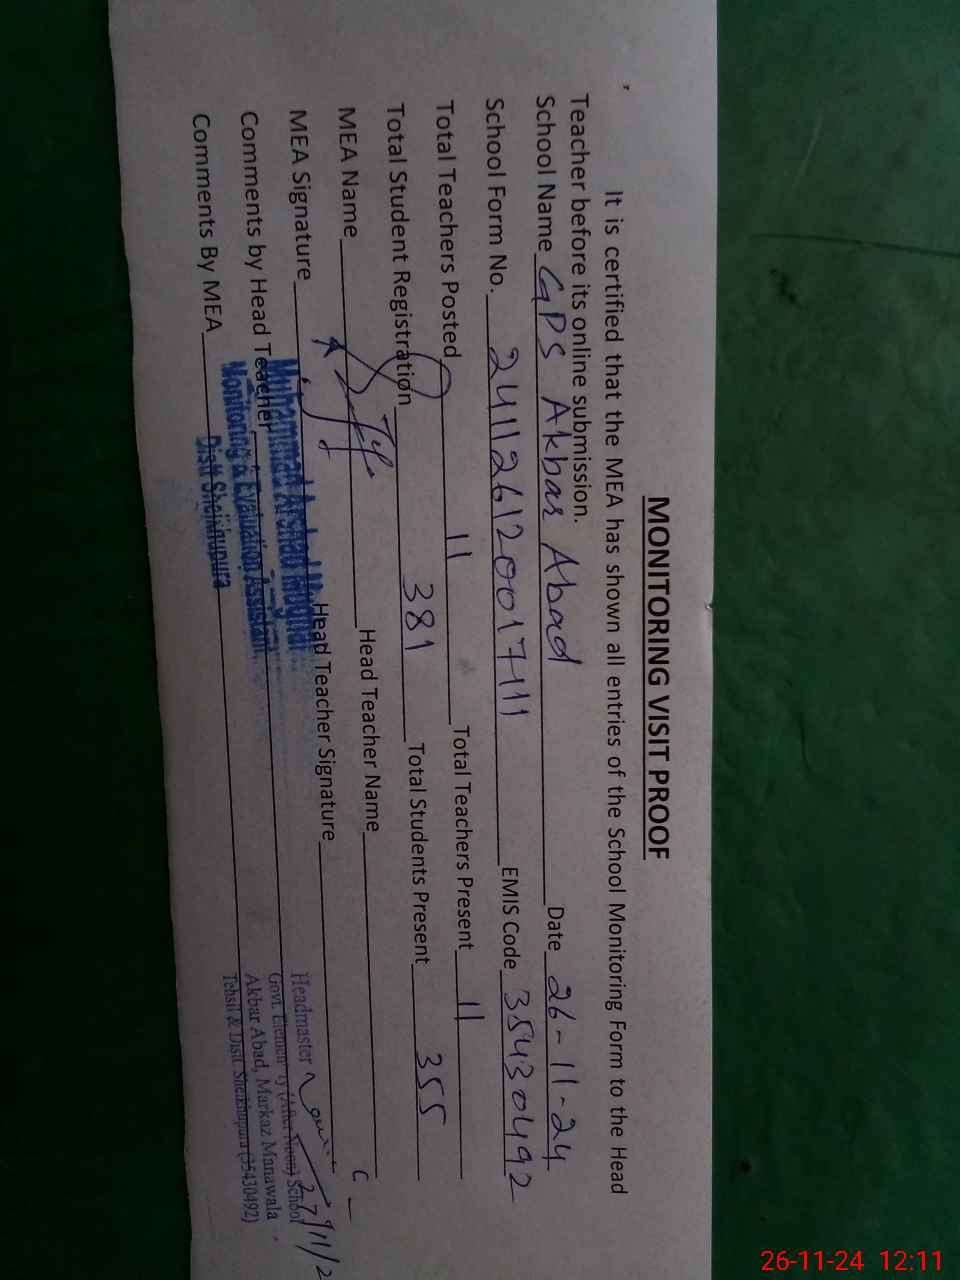 MONITORING VISIT PROOF
It is certified that the MEA has shown all entries of the School Monitoring Form to the Head
Teacher before its online submission.
School Name GPS Akbar Abad Date 26-11-24
School Form No. 241126120017111 EMIS Code 35430492
Total Teachers Posted 11 Total Teachers Present 11
Total Student Registration 381 Total Students Present 355
MEA Name Head Teacher Name
MEA Signature Head Teacher Signature
Comments by Head Teacher
Comments By MEA
Muhammad Arshad
Monitoring & Evaluation Assistant
Distt Sheikhupura
Headmaster
Govt. Elementary (After Noon) School
Akbar Abad, Markaz Manawala
Tehsil & Distt. Sheikhupura (35430492)
27/11/2
26-11-24 12:11